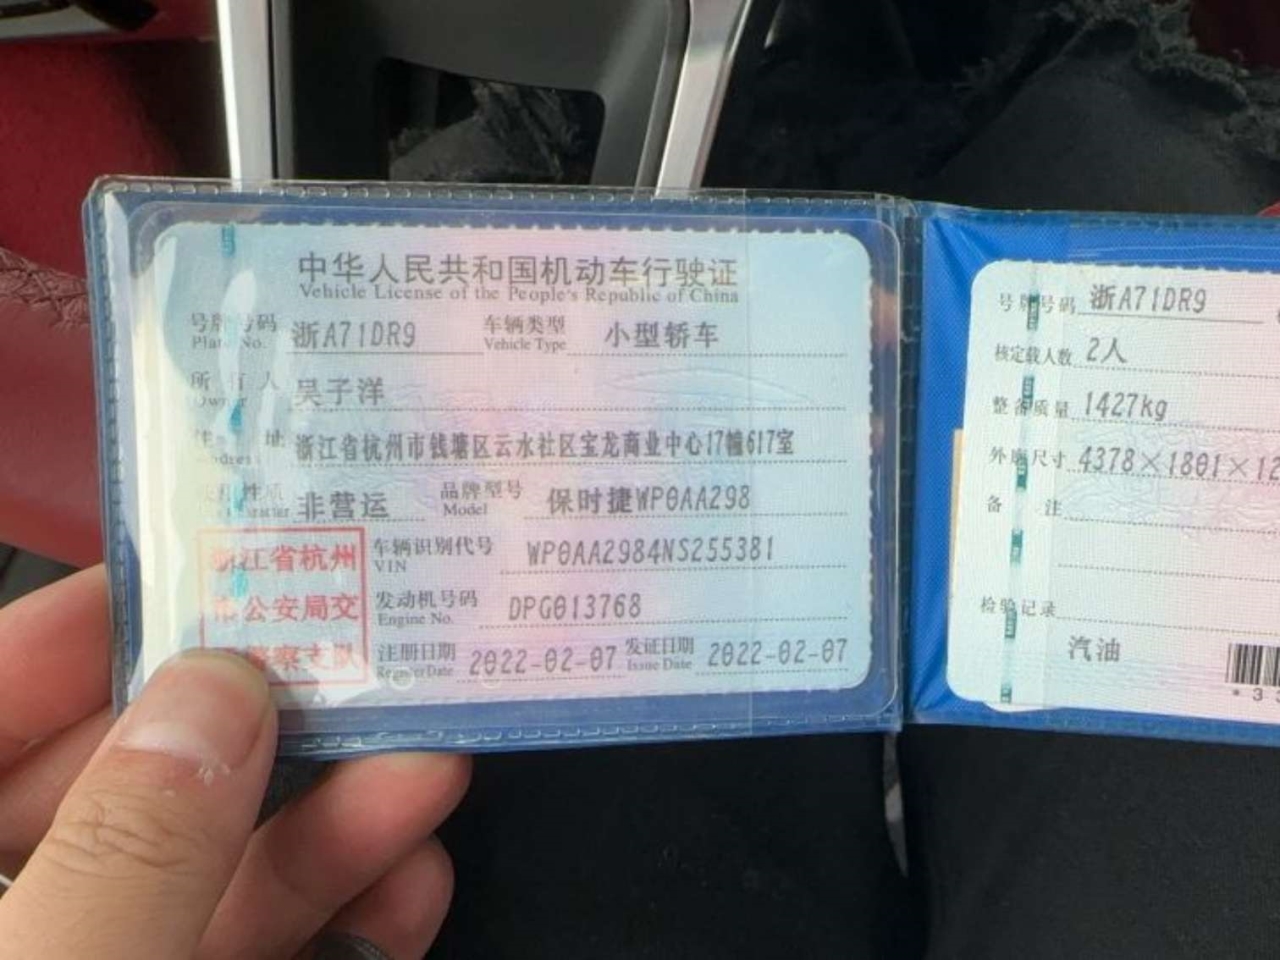 中华人民共和国机动车行驶证
Vehicle License of the People's Republic of China
号牌号码 浙A71DR9 车辆类型 小型轿车
Plate No. Vehicle Type
所有人 吴子洋
Owner
住址 浙江省杭州市钱塘区云水社区宝龙商业中心17幢617室
性质 非营运 品牌型号 保时捷WP0AA298
Model
浙江省杭州 车辆识别代号 WP0AA2984NS255381
VIN
市公安局交 发动机号码 DPG013768
Engine No.
警察支队 注册日期 2022-02-07 发证日期 2022-02-07
Register Date Issue Date
号牌号码 浙A71DR9
核定载人数 2人
整备质量 1427kg
外廓尺寸 4378×1801×12
备注
检验记录
汽油
*3